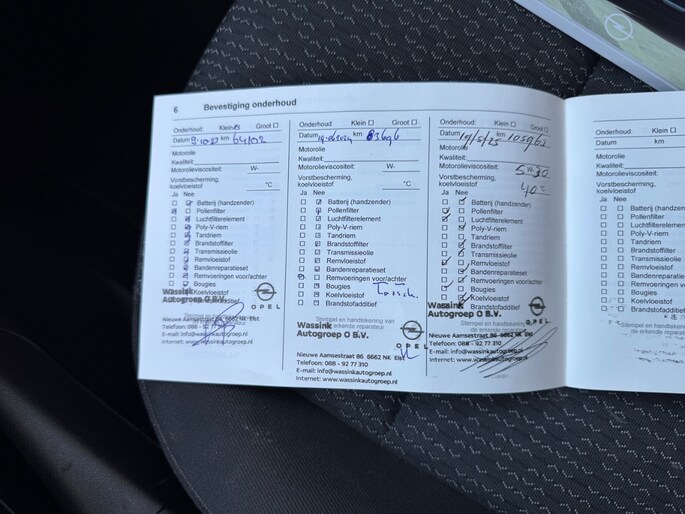 6 Bevestiging onderhoud
Onderhoud: Klein Groot
Datum 9-10-23 km 64102
Motorolie
Kwaliteit:
Motorolieviscositeit: W-
Vorstbescherming,
koelvloeistof °C
Ja Nee
Batterij (handzender)
Pollenfilter
Luchtfilterelement
Poly-V-riem
Tandriem
Brandstoffilter
Transmissieolie
Remvloeistof
Bandenreparatieset
Remvoeringen voor/achter
Bougies
Koelvloeistof
Brandstofadditief
Wassink
Autogroep O B.V.
OPEL
Nieuwe Aamsestraat 86 6662 NK Elst
Telefoon: 088 - 92 77 310
E-mail: info@wassinkautogroep.nl
Internet: www.wassinkautogroep.nl
Onderhoud: Klein Groot
Datum km 83696
Motorolie
Kwaliteit:
Motorolieviscositeit: W-
Vorstbescherming,
koelvloeistof °C
Ja Nee
Batterij (handzender)
Pollenfilter
Luchtfilterelement
Poly-V-riem
Tandriem
Brandstoffilter
Transmissieolie
Remvloeistof
Bandenreparatieset
Remvoeringen voor/achter
Bougies
Koelvloeistof
Brandstofadditief
Stempel en handtekening van
de erkende reparateur
Wassink
Autogroep O B.V.
OPEL
Nieuwe Aamsestraat 86 6662 NK Elst
Telefoon: 088 - 92 77 310
E-mail: info@wassinkautogroep.nl
Internet: www.wassinkautogroep.nl
Onderhoud: Klein Groot
Datum 19/5/25 km
Motorolie
Kwaliteit:
Motorolieviscositeit: 5W30
Vorstbescherming,
koelvloeistof
Ja Nee
Batterij (handzender)
Pollenfilter
Luchtfilterelement
Poly-V-riem
Tandriem
Brandstoffilter
Transmissieolie
Remvloeistof
Bandenreparatieset
Remvoeringen voor/achter
Bougies
Koelvloeistof
Brandstofadditief
Wassink
Autogroep O B.V.
OPEL
Stempel en handtekening van
de erkende reparateur
Nieuwe Aamsestraat 86 6662 NK Elst
Telefoon: 088 - 92 77 310
E-mail: info@wassinkautogroep.nl
Internet: www.wassinkautogroep.nl
Onderhoud: Klein
Datum km
Motorolie
Kwaliteit:
Motorolieviscositeit:
Vorstbescherming,
koelvloeistof
Ja Nee
Batterij (hand
Pollenfilter
Luchtfilter
Poly-V-
Tandr